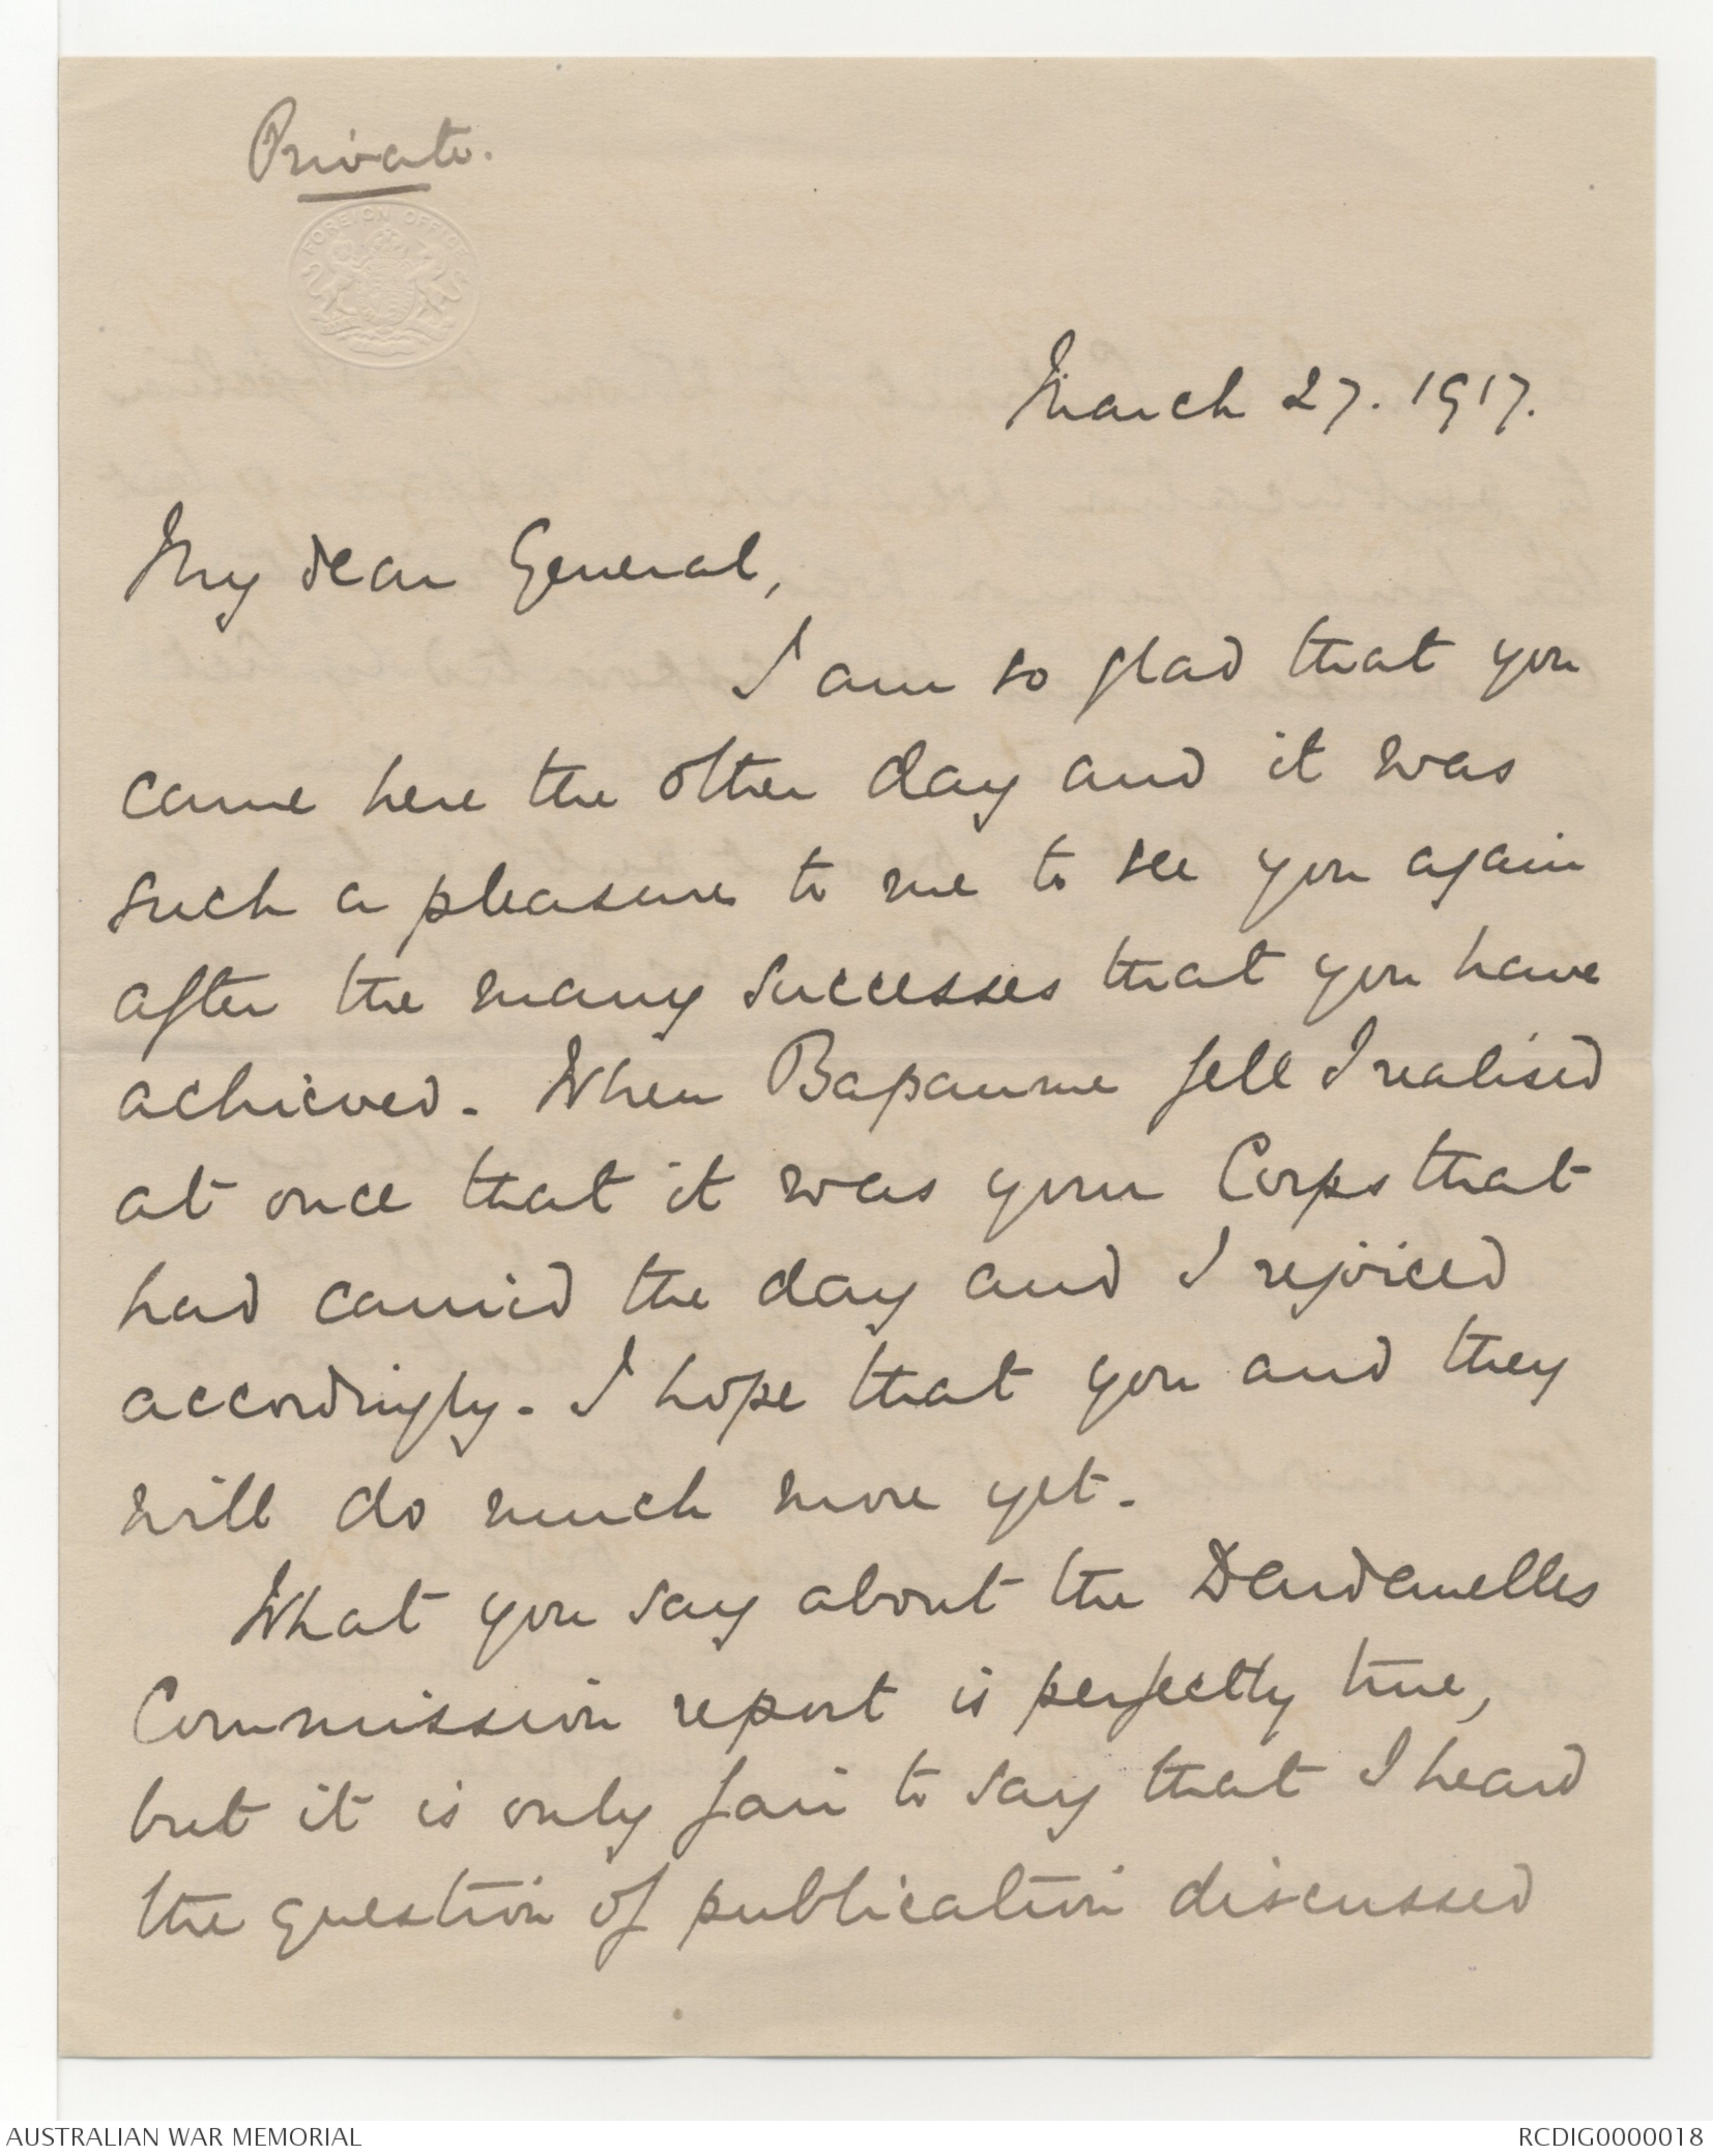 Private.
FOREIGN OFFICE
March 27. 1917.
My dear General,
I am so glad that you
came here the other day and it was
such a pleasure to me to see you again
after the many successes that you have
achieved. When Bapaume fell I realised
at once that it was your Corps that
had carried the day and I rejoiced
accordingly. I hope that you and they
will do much more yet.
What you say about the Dardanelles
Commission report is perfectly true,
but it is only fair to say that I heard
the question of publication discussed
AUSTRALIAN WAR MEMORIAL
RCDIG0000018